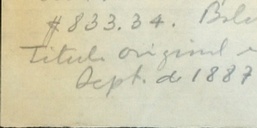 $833.34. Bol
titulo original
Sept. de 1887